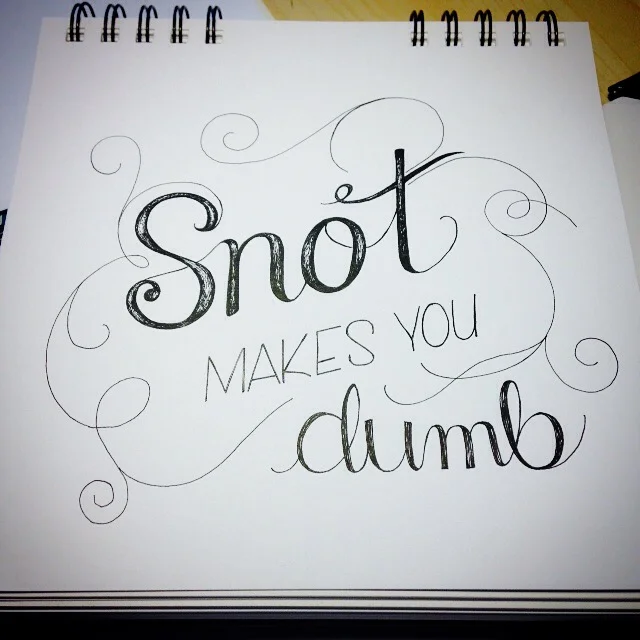 Snot
MAKES YOU
dumb